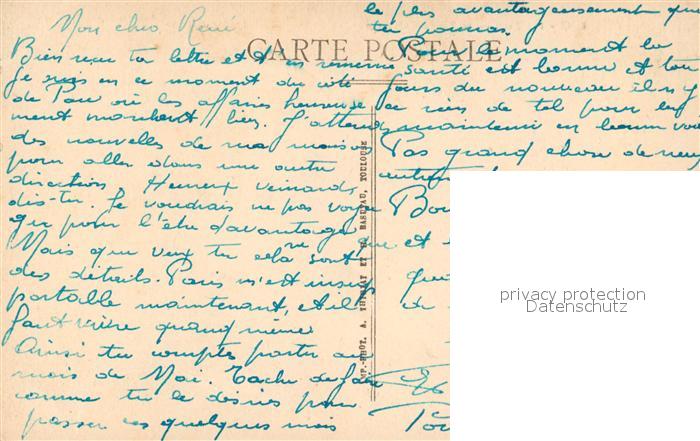 Mon cher René
Bien reçu ta lettre et t'en remercie
Je suis en ce moment du côté
de Pau où les affaires heureuse
ment marchent bien. J'attends
des nouvelles de ma maison
pour aller dans une autre
direction. Heureux veinard,
dis-tu. Je voudrais ne pas voya
ger pour l'être davantage
Mais que veux tu cela ne sont
des détails. Paris m'est insup
portable maintenant, et il
faut vivre quand même
Ainsi tu comptes partir au
mois de Mai. Tache de faire
comme tu le désires pour
passer ces quelques mois
le plus avantageusement que
tu pourras.
CARTE POSTALE
le moment la
santé est bonne et tou
jours du nouveau il n'y
a rien de tel pour les
maintenir en bonne
Pas grand chose de neuf
Bon
et
que
et
IMP.-PHOT. A. THIRIAT ET BASUYAU, TOULOUSE
privacy protection
Datenschutz